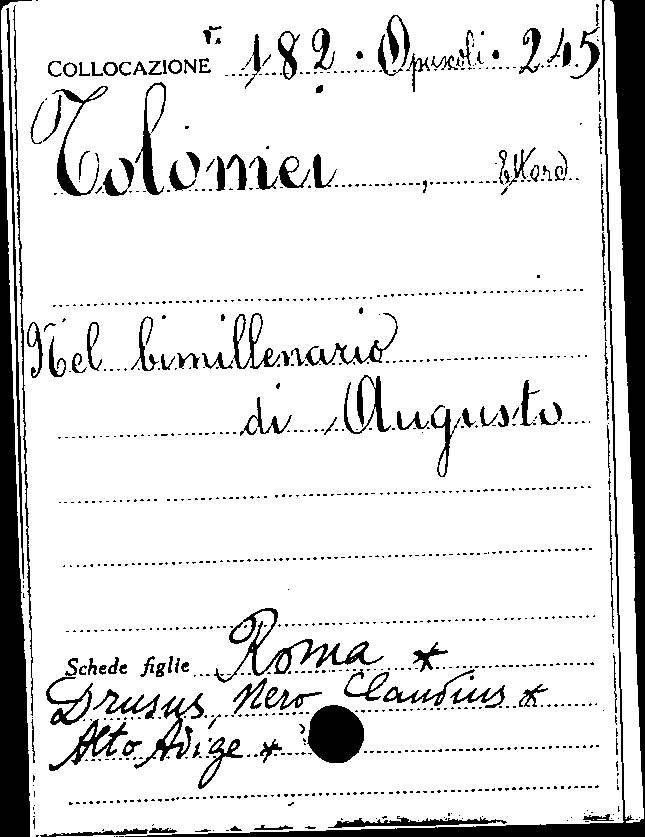 COLLOCAZIONE r. 182 · Opuscoli · 245
Tolomei, Ettore
Nel bimillenario
di Augusto
Schede figlie Roma *
Drusus, Nero Claudius *
Alto Adige *